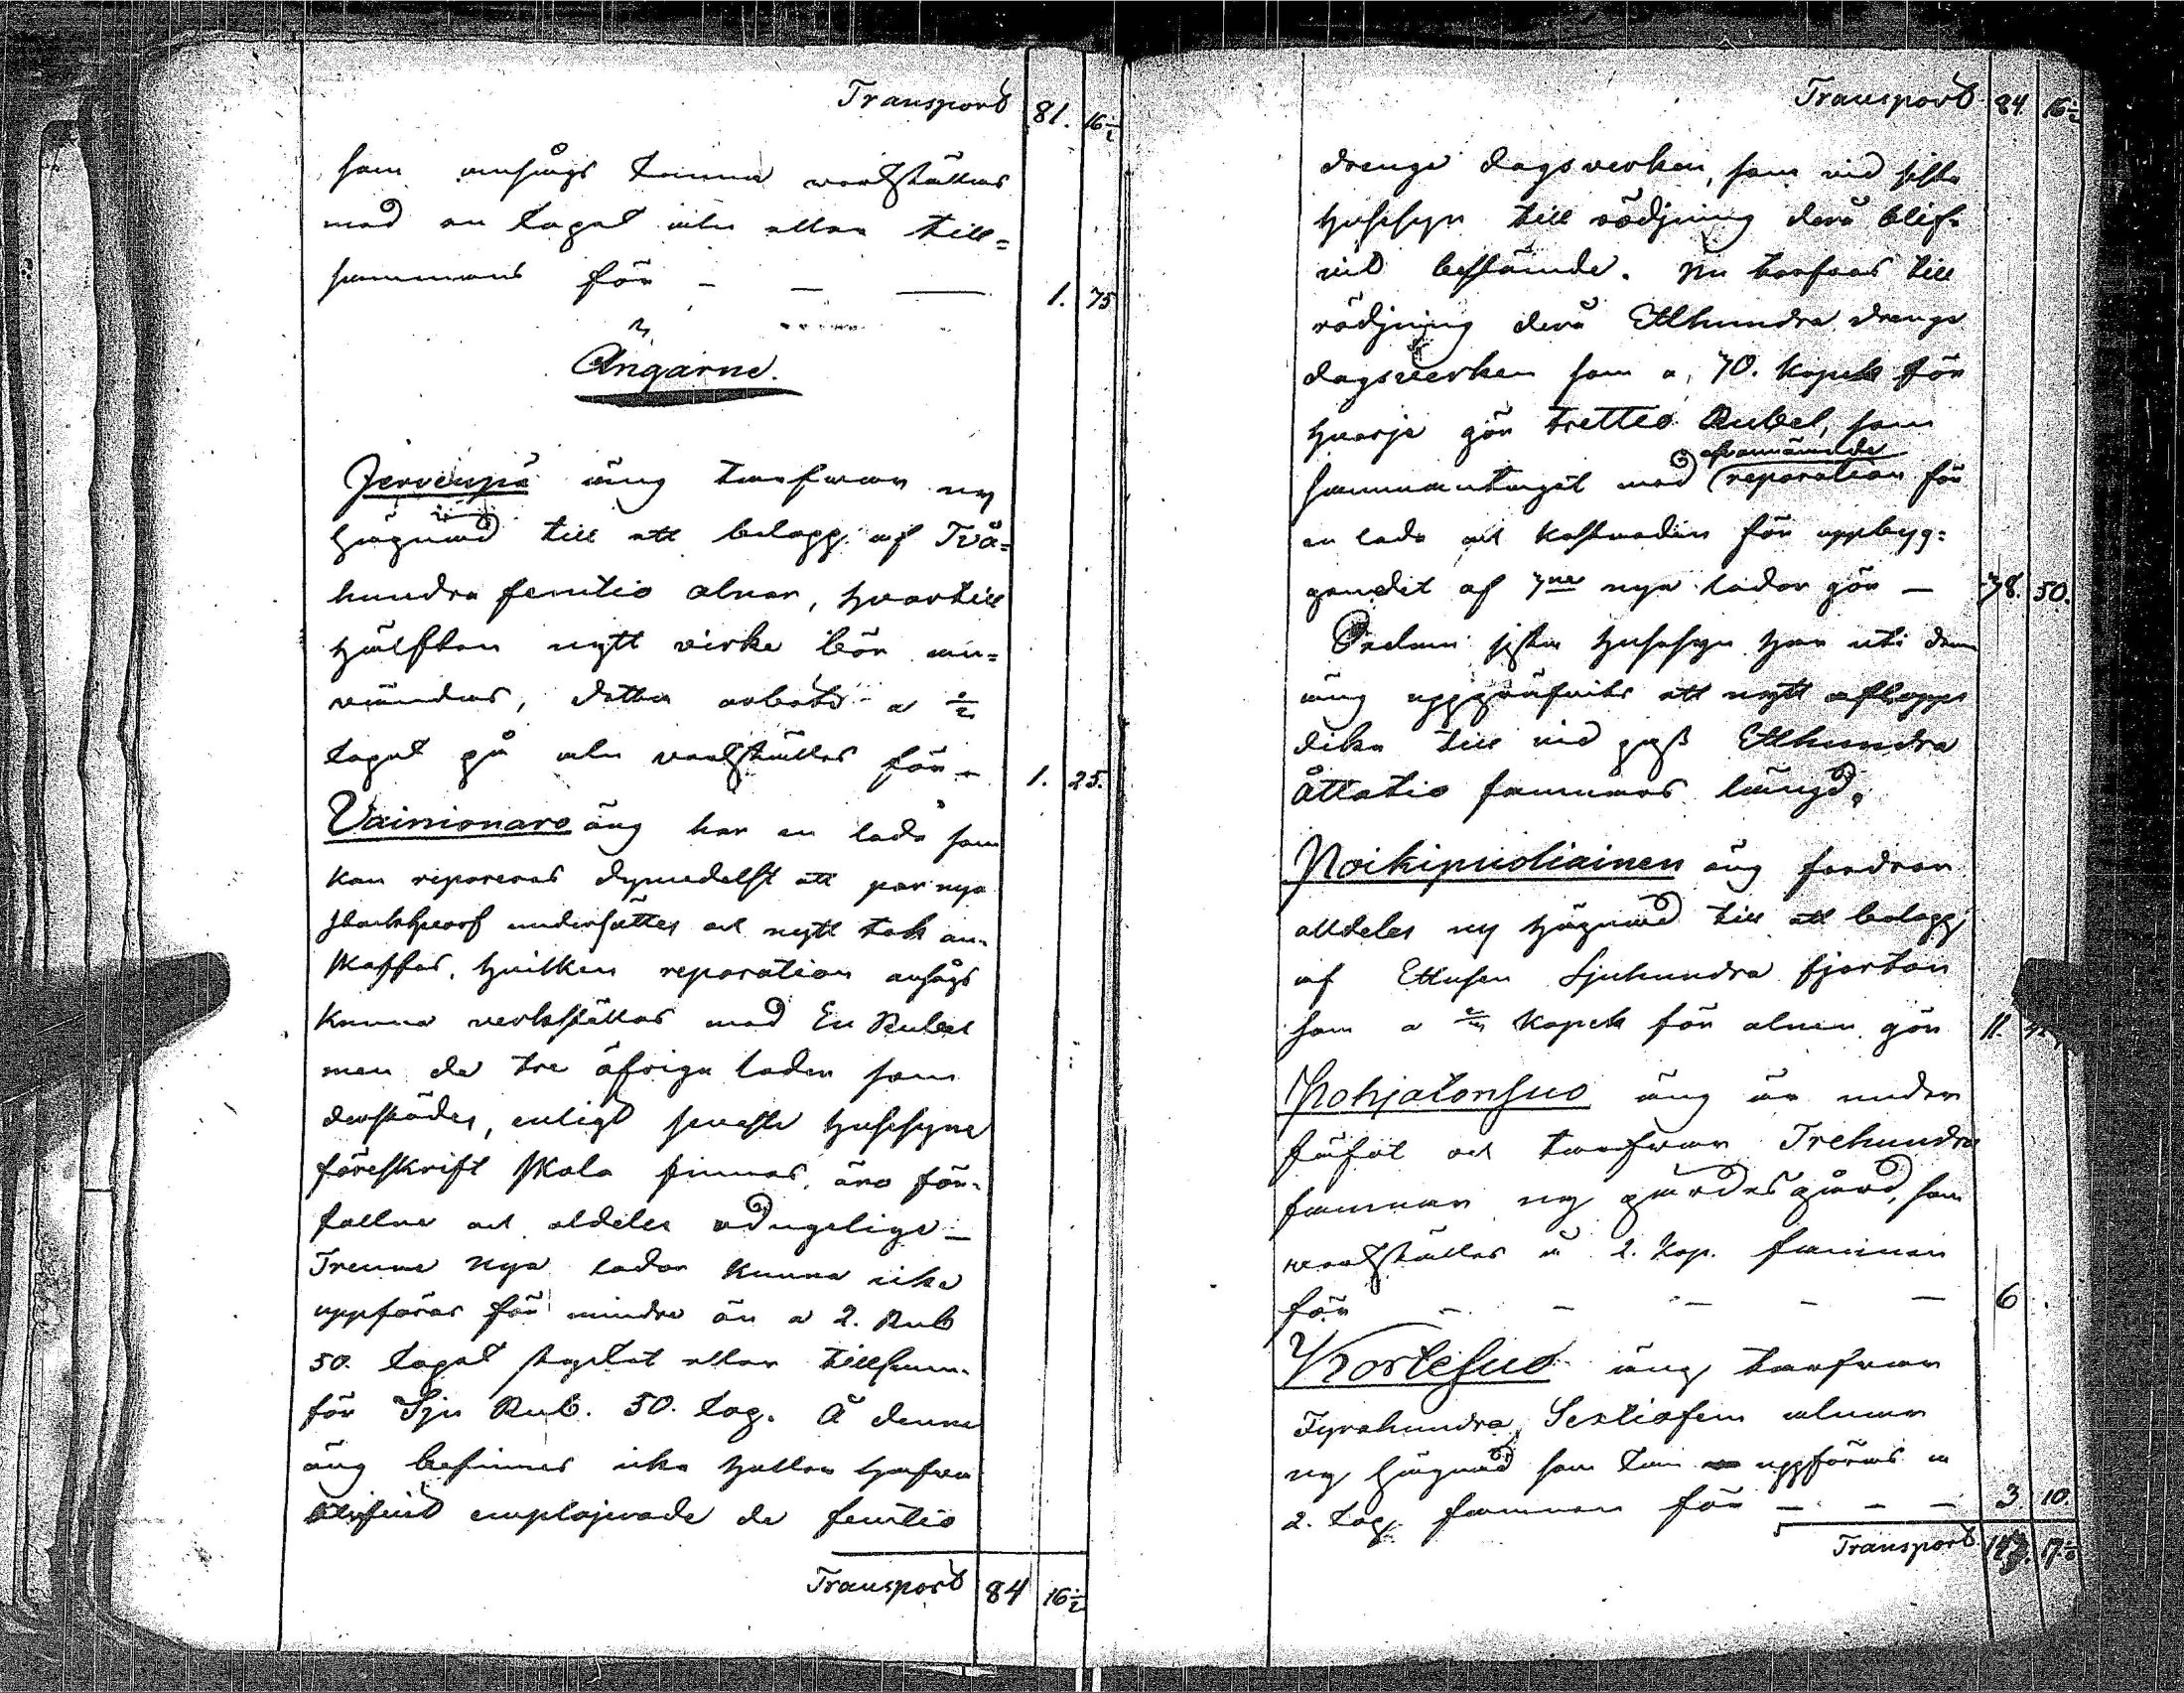 Transport 81. 16 1/2
som ansågs kunna verkställas
med en kopek aln eller till=
sammans för - - — 1. 75
Ängarne.
Jervenpä äng tarfvar ny
hägnad till ett belopp af Två=
hundra femtio alnar, hvartill
hälften nytt virke bör an=
vändas, detta arbete a 1/2
kopek på aln verkställes för - 1. 25.
Vainionaro äng har en lada som
kan repareras dymedelst att par nya
stockhvarf undersättes och nytt tak an=
skaffas, hvilken reparation ansågs
kunna verkställas med En Rubel
men de tre öfriga lador som
derstädes, enligt senaste husesyns
föreskrift skola finnas, äro för=
fallne och aldeles odugelige —
Trenne nya lador kunna icke
uppföras för mindre än a 2. Rub
50. kopek stycket eller tillsam.
för Sju Rub. 50. kop. Å denna
äng befinnes icke heller hafva
blifvit emplojerade de femtio
Transport 84 16 1/2
Transport 84. 16 1/2
drengs dagsverken, som vid sista
husesyn till rödjning derå blif=
vit bestämde. Nu tarfvas till
rödjning derå Etthundra drengs
dagsverken som a, 70. kopek för
hvarje gör Rubel, som
sammantaget med ofvannämnde reparation för
en lada och kostnaden för uppbyg=
gandet af nya lador gör — 78. 50.
Sedan sista husesyn har uti denna
äng uppgräfvits ett nytt aflopps
dike till vid pass Etthundra
åttatio famnars längd.
Poikipuoliainen äng fordrar
alldeles ny hägnad till ett belopp
af Ettusen Sjuhundra fjorton
som a kopek för alnen gör 11.
Pohjatonsuo äng är under
fäfot och tarfvar Trehundra
famnar ny gärdesgård, som
verkställes a 2. kop. famnen
för - - - - - 6
Kortesuo äng tarfvar
Fyrahundra Sextiofem alnar
ny hägnad som kan uppföras a
2. kop. famnen för - - - 3 10
Transport